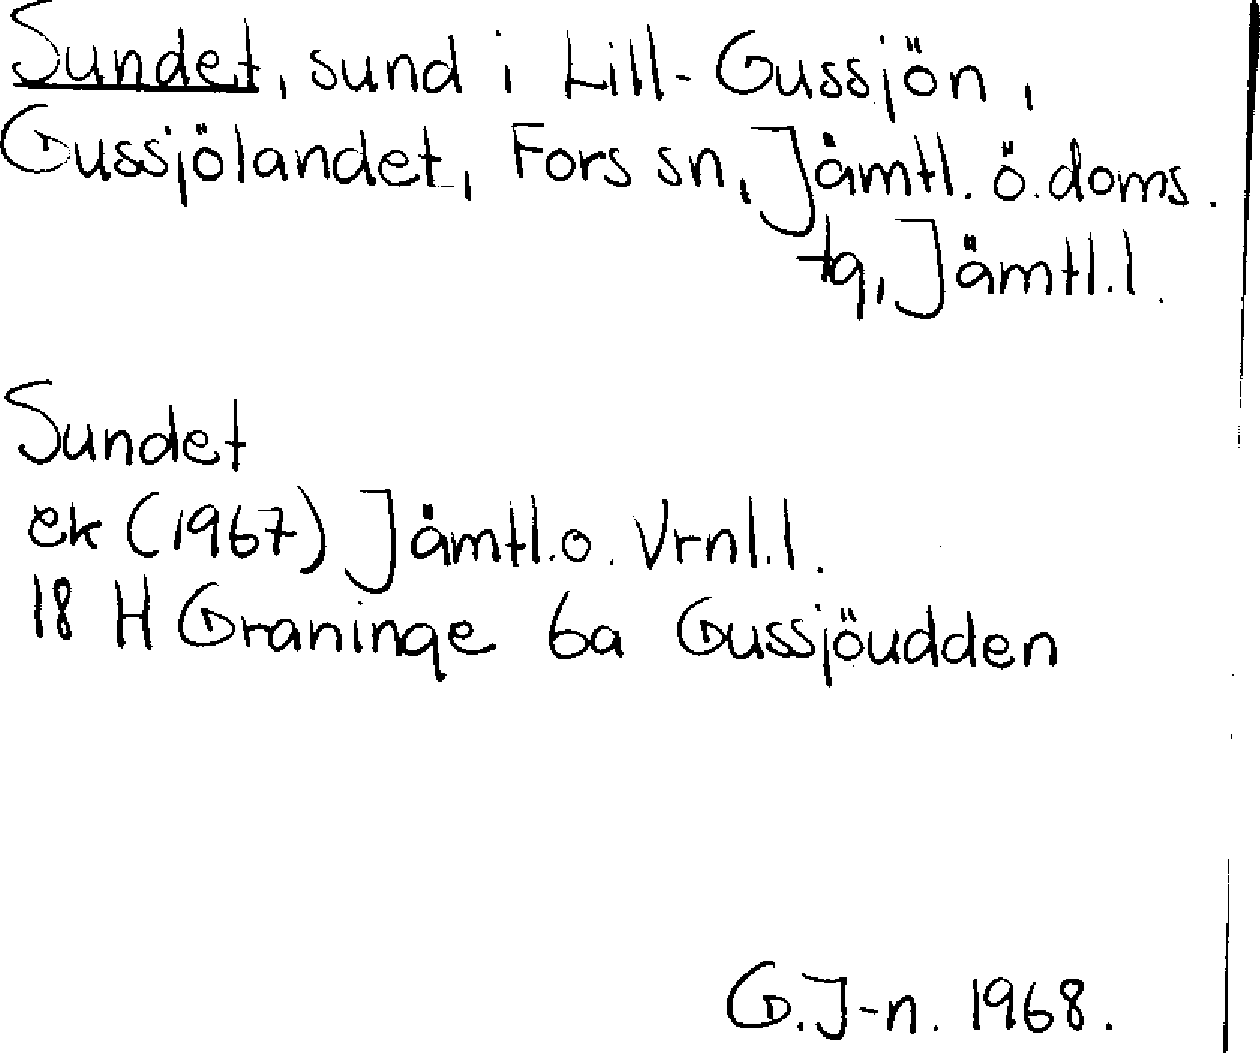 Sundet, sund i Lill-Gussjön,
Gussjölandet, Fors sn, Jämtl. ö. doms.
tg, Jämtl.l.
Sundet
ek (1967) Jämtl.o. Vrnl.l.
18 H Graninge 6a Gussjöudden
G.J-n. 1968.